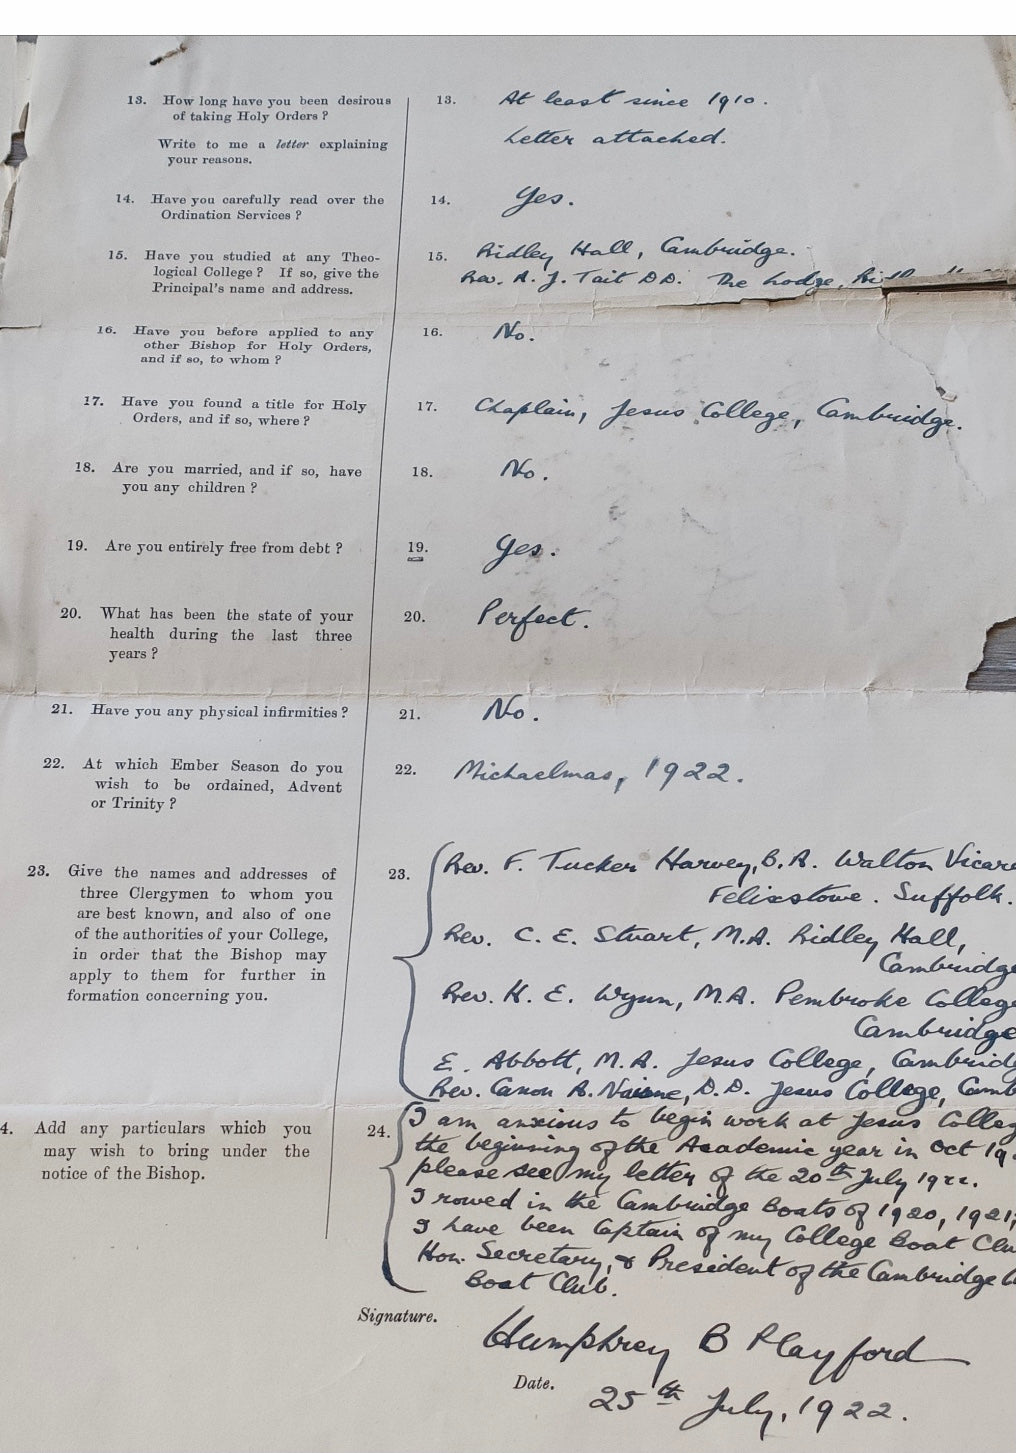 13. How long have you been desirous
of taking Holy Orders ?
Write to me a letter explaining
your reasons.
13. At least since 1910.
Letter attached.
14. Have you carefully read over the
Ordination Services ?
14. Yes.
15. Have you studied at any Theo-
logical College ? If so, give the
Principal's name and address.
15. Ridley Hall, Cambridge.
Rev. A. J. Tait D D. The Lodge,
16. Have you before applied to any
other Bishop for Holy Orders,
and if so, to whom ?
16. No.
17. Have you found a title for Holy
Orders, and if so, where ?
17. Chaplain, Jesus College, Cambridge.
18. Are you married, and if so, have
you any children ?
18. No.
19. Are you entirely free from debt ?
19. Yes.
20. What has been the state of your
health during the last three
years ?
20. Perfect.
21. Have you any physical infirmities ?
21. No.
22. At which Ember Season do you
wish to be ordained, Advent
or Trinity ?
22. Michaelmas, 1922.
23. Give the names and addresses of
three Clergymen to whom you
are best known, and also of one
of the authorities of your College,
in order that the Bishop may
apply to them for further in
formation concerning you.
23. Rev. F. Tucker Harvey, B.A. Walton Vicar
Felixstowe. Suffolk.
Rev. C. E. Stuart, M.A. Ridley Hall,
Cambridge
Rev. H. E. Wynn, M.A. Pembroke College
Cambridge
E. Abbott, M.A. Jesus College, Cambridg
Rev. Canon A. Nairne, D.D. Jesus College, Camb
4. Add any particulars which you
may wish to bring under the
notice of the Bishop.
24. I am anxious to begin work at Jesus Colleg
the beginning of the Academic year in Oct 19
please see my letter of the 20th July 1922.
I rowed in the Cambridge Boats of 1920, 1921,
I have been Captain of my College Boat Clu
Hon. Secretary, & President of the Cambridge
Boat Club.
Signature.
Humphrey B Playford
Date.
25th July, 1922.